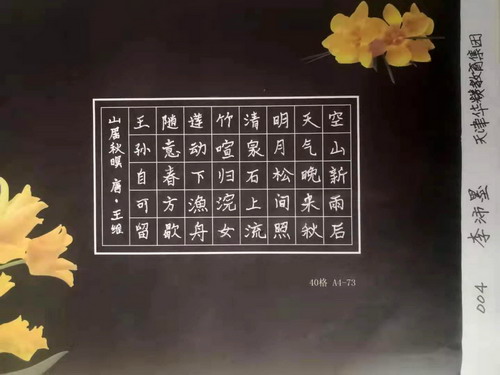 空山新雨后
天气晚来秋
明月松间照
清泉石上流
竹喧归浣女
莲动下漁舟
随意春方歇
王孙自可留
山居秋暝 唐·王维
40格 A4-73
天津华教育集团
004 李沛墨